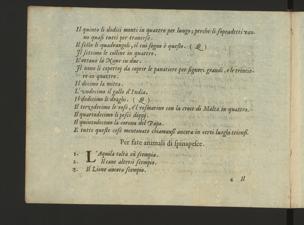 Il quinto li dodici monti in quattro per longo; perche li sopradetti vanno quasi tutti per trauerso.
Il sesto li quadrangoli, il cui segno è questo. ( )
Il settimo le colline in quattro.
L'ottauo la Naue in due.
Il nono il copertoz da coprir le panatiere per signori grandi, e le trinciere in quattro.
Il decimo la mitra.
L'undecimo il gallo d'India.
Il dodecimo li draghi. ( )
Il terzodecimo le rose, e'l trefontano con la croce di Malta in quattro.
Il quartodecimo li pesci doppij.
Il quintodecimo la corona del Papa.
E tutte queste cose mentouate chiamansi ancora in certi luoghi trionfi.
Per fare animali di spinapesce.
1. L'Aquila volta ò stempia.
2. Il cane altresi stempio.
3. Il Lione ancora stempio.
4 Il